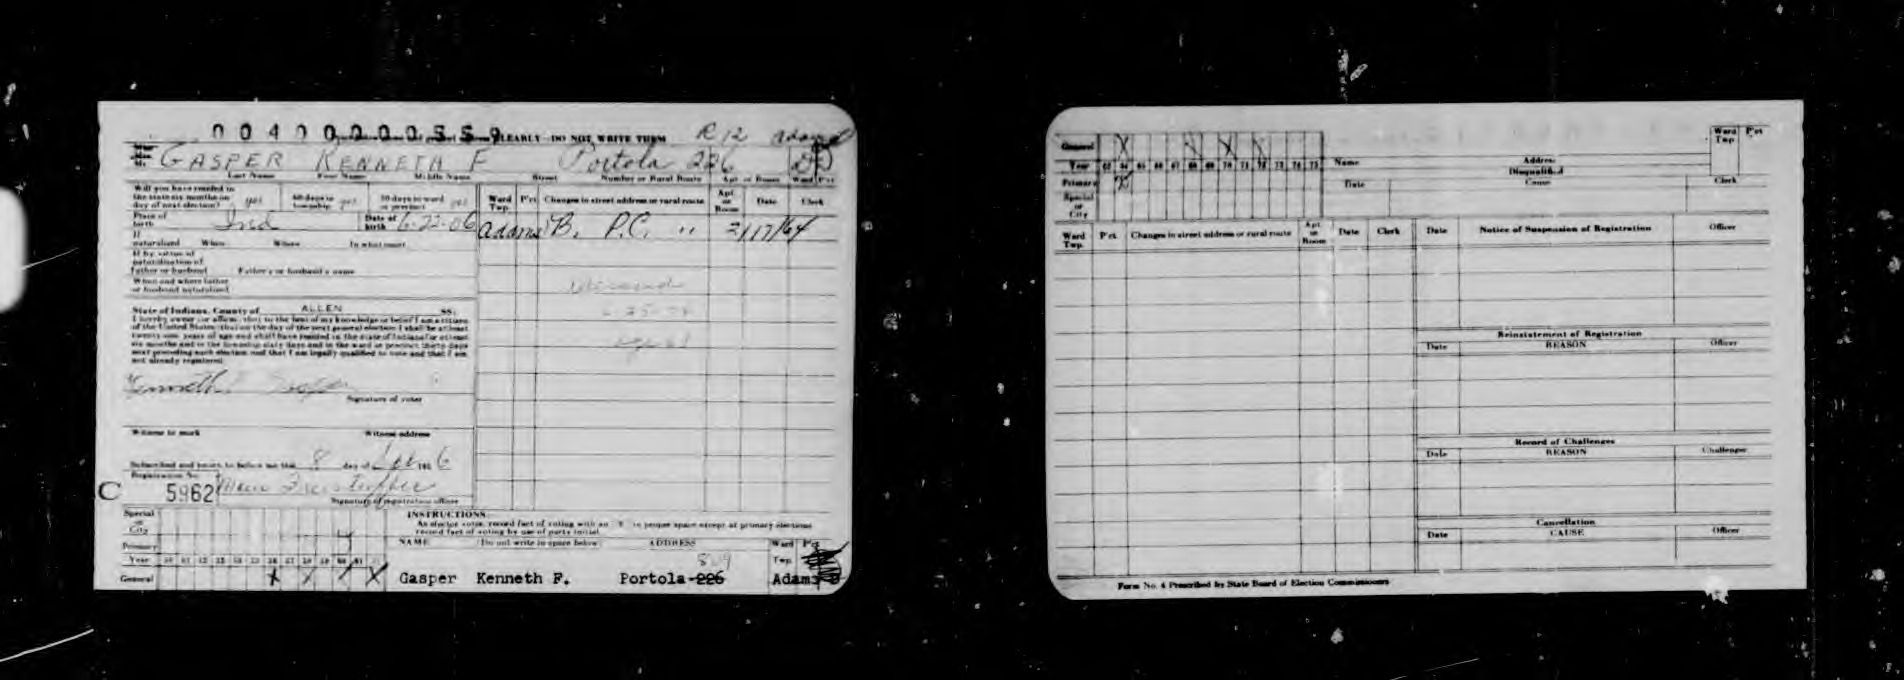 0040000559 CLEARLY DO NOT WRITE THEM R 12 Adams
GASPER KENNETH F Portola 226
Last Name First Name Middle Name Street Number or Rural Route Apt or Room Ward P'ct
Will you have resided in the state six months on day of next election? yes 60 days in township yes 30 days in ward or precinct yes
Ward Twp. P'ct Changes in street address or rural route Apt or Room Date Clerk
Place of birth Ind Date of birth 6-22-06
Adams B. P.C. " 2/17/64
If naturalized When Where In what court
If by virtue of naturalization of
Father or husband Father's or husband's name
When and where father or husband naturalized
State of Indiana, County of ALLEN SS:
I hereby swear (or affirm) that to the best of my knowledge or belief I am a citizen
of the United States; that on the day of the next general election I shall be at least
twenty-one years of age and shall have resided in the state of Indiana for at least
six months and in the township sixty days and in the ward or precinct thirty days
next preceding such election; and that I am legally qualified to vote and that I am
not already registered.
Kenneth Gasper
Signature of voter
Witness to mark Witness address
Subscribed and sworn to before me this 8 day of
Registration No.
C 5962
Signature of registration officer
Special or City
Primary
Year
General
INSTRUCTIONS
As elector votes, record fact of voting with an X in proper space except at primary elections
record fact of voting by use of party initial.
NAME (Do not write in space below) ADDRESS Ward Twp. P'ct
Gasper Kenneth F. Portola-226 Adams
General X X X
Year 63 64 65 66 67 68 69 70 71 72 73 74 75
Primary
Special or City
Name Address Ward Twp P'ct
Disqualified
Date Cause Clerk
Ward Twp. P'ct Changes in street address or rural route Apt or Room Date Clerk
Date Notice of Suspension of Registration Officer
Reinstatement of Registration
Date REASON Officer
Record of Challenges
Date REASON Challenger
Cancellation
Date CAUSE Officer
Form No. 4 Prescribed by State Board of Election Commissioners